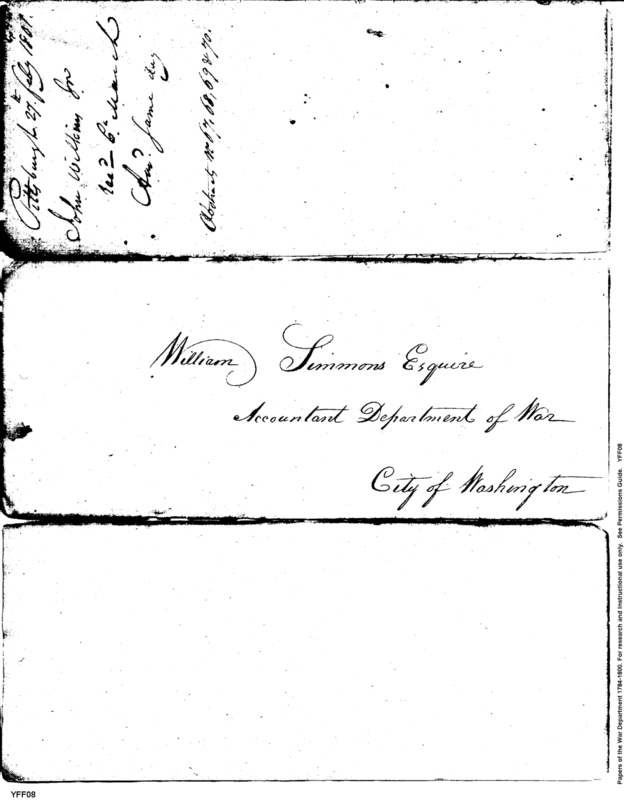 Pittsburgh 27th Feby 1801.
John Wilkins Jr
Recd 6th March
Ansd same day
Abstracts No 67, 68, 69 & 70.
William Simmons Esquire
Accountant Department of War
City of Washington
Papers of the War Department 1784-1800. For research and Instructional use only. See Permissions Guide. YFF08
YFF08